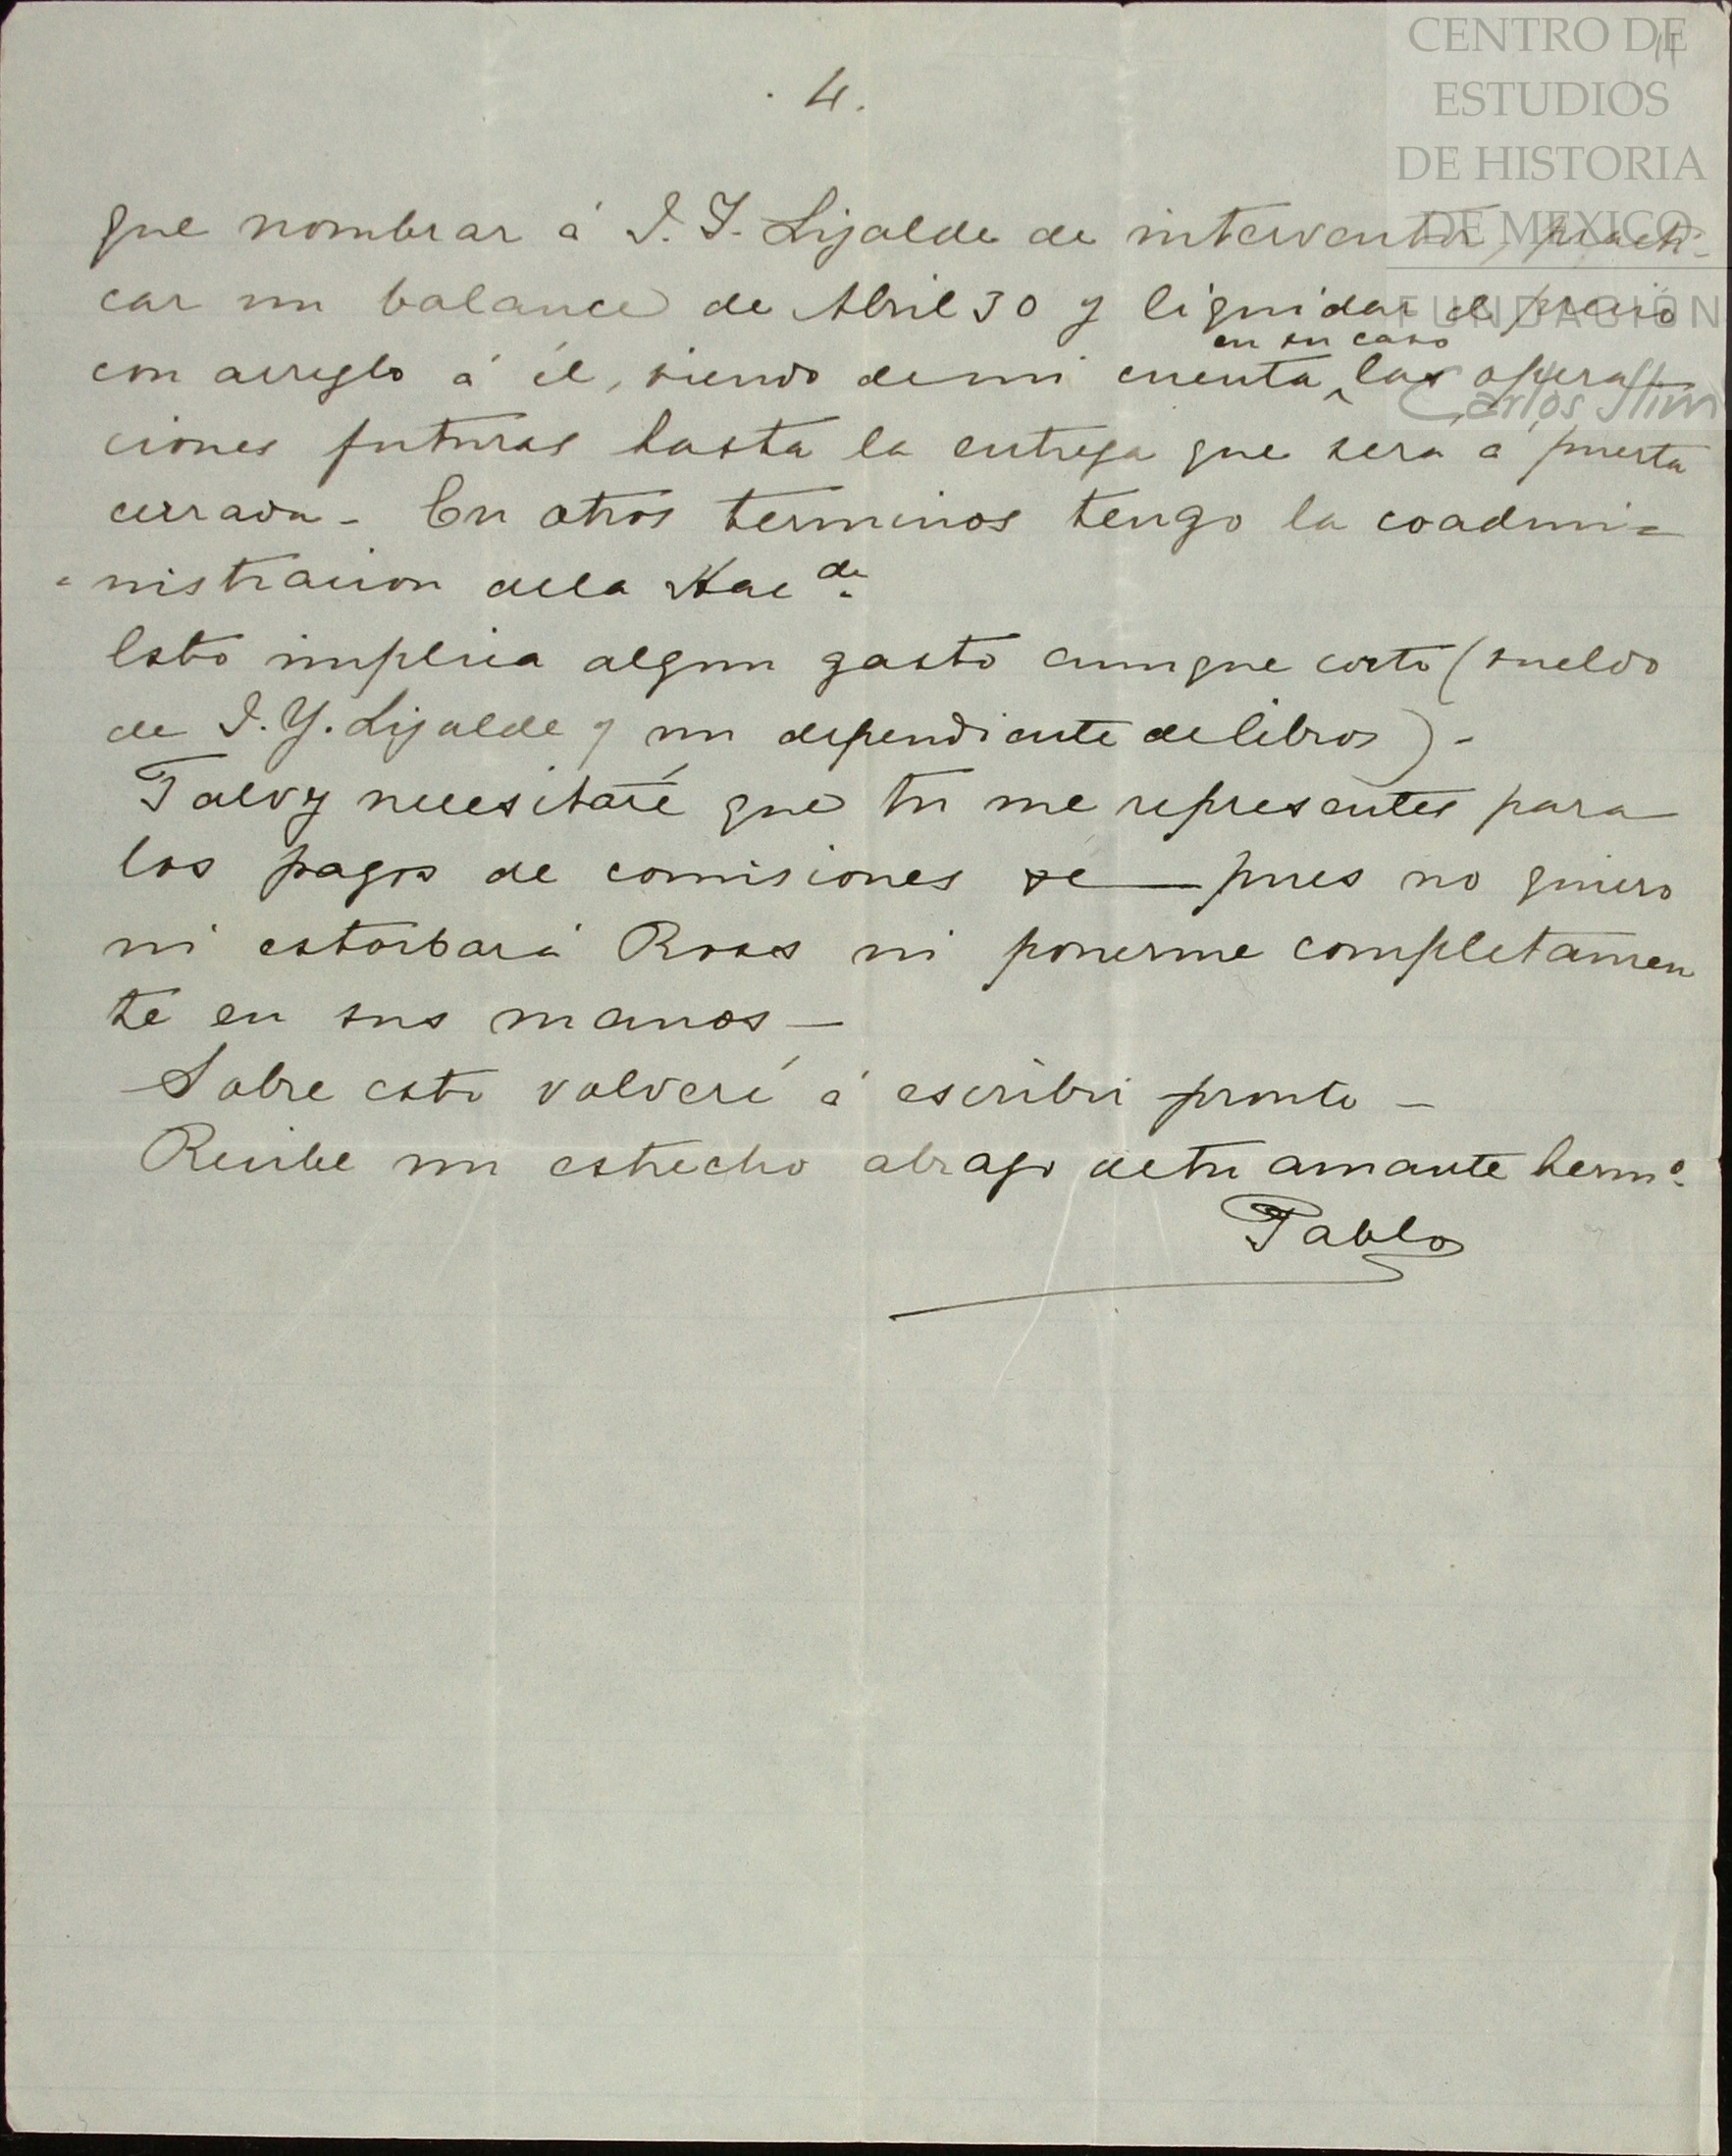 CENTRO DE
ESTUDIOS
DE HISTORIA
DE MEXICO
FUNDACIÓN
Carlos Slim
4.
que nombrar á I. Y. Lizalde de interventor, practi-
car un balance de Abril 30 y liquidar el precio
con arreglo á él, siendo de mi cuenta en su caso las opera
ciones futuras hasta la entrega que será á puerta
cerrada - En otros terminos tengo la coadmi=
=nistracion de la Hacda.
Esto implica algun gasto aunque corto (sueldo
de I. Y. Lizalde y un dependiente de libros) -
Talvez necesitaré que tu me representes para
los pagos de comisiones — pues no quiero
ni estorbar á Ross ni ponerme completamen
te en sus manos —
Sobre esto volveré á escribir pronto —
Recibe un estrecho abrazo de tu amante hermo.
Pablo